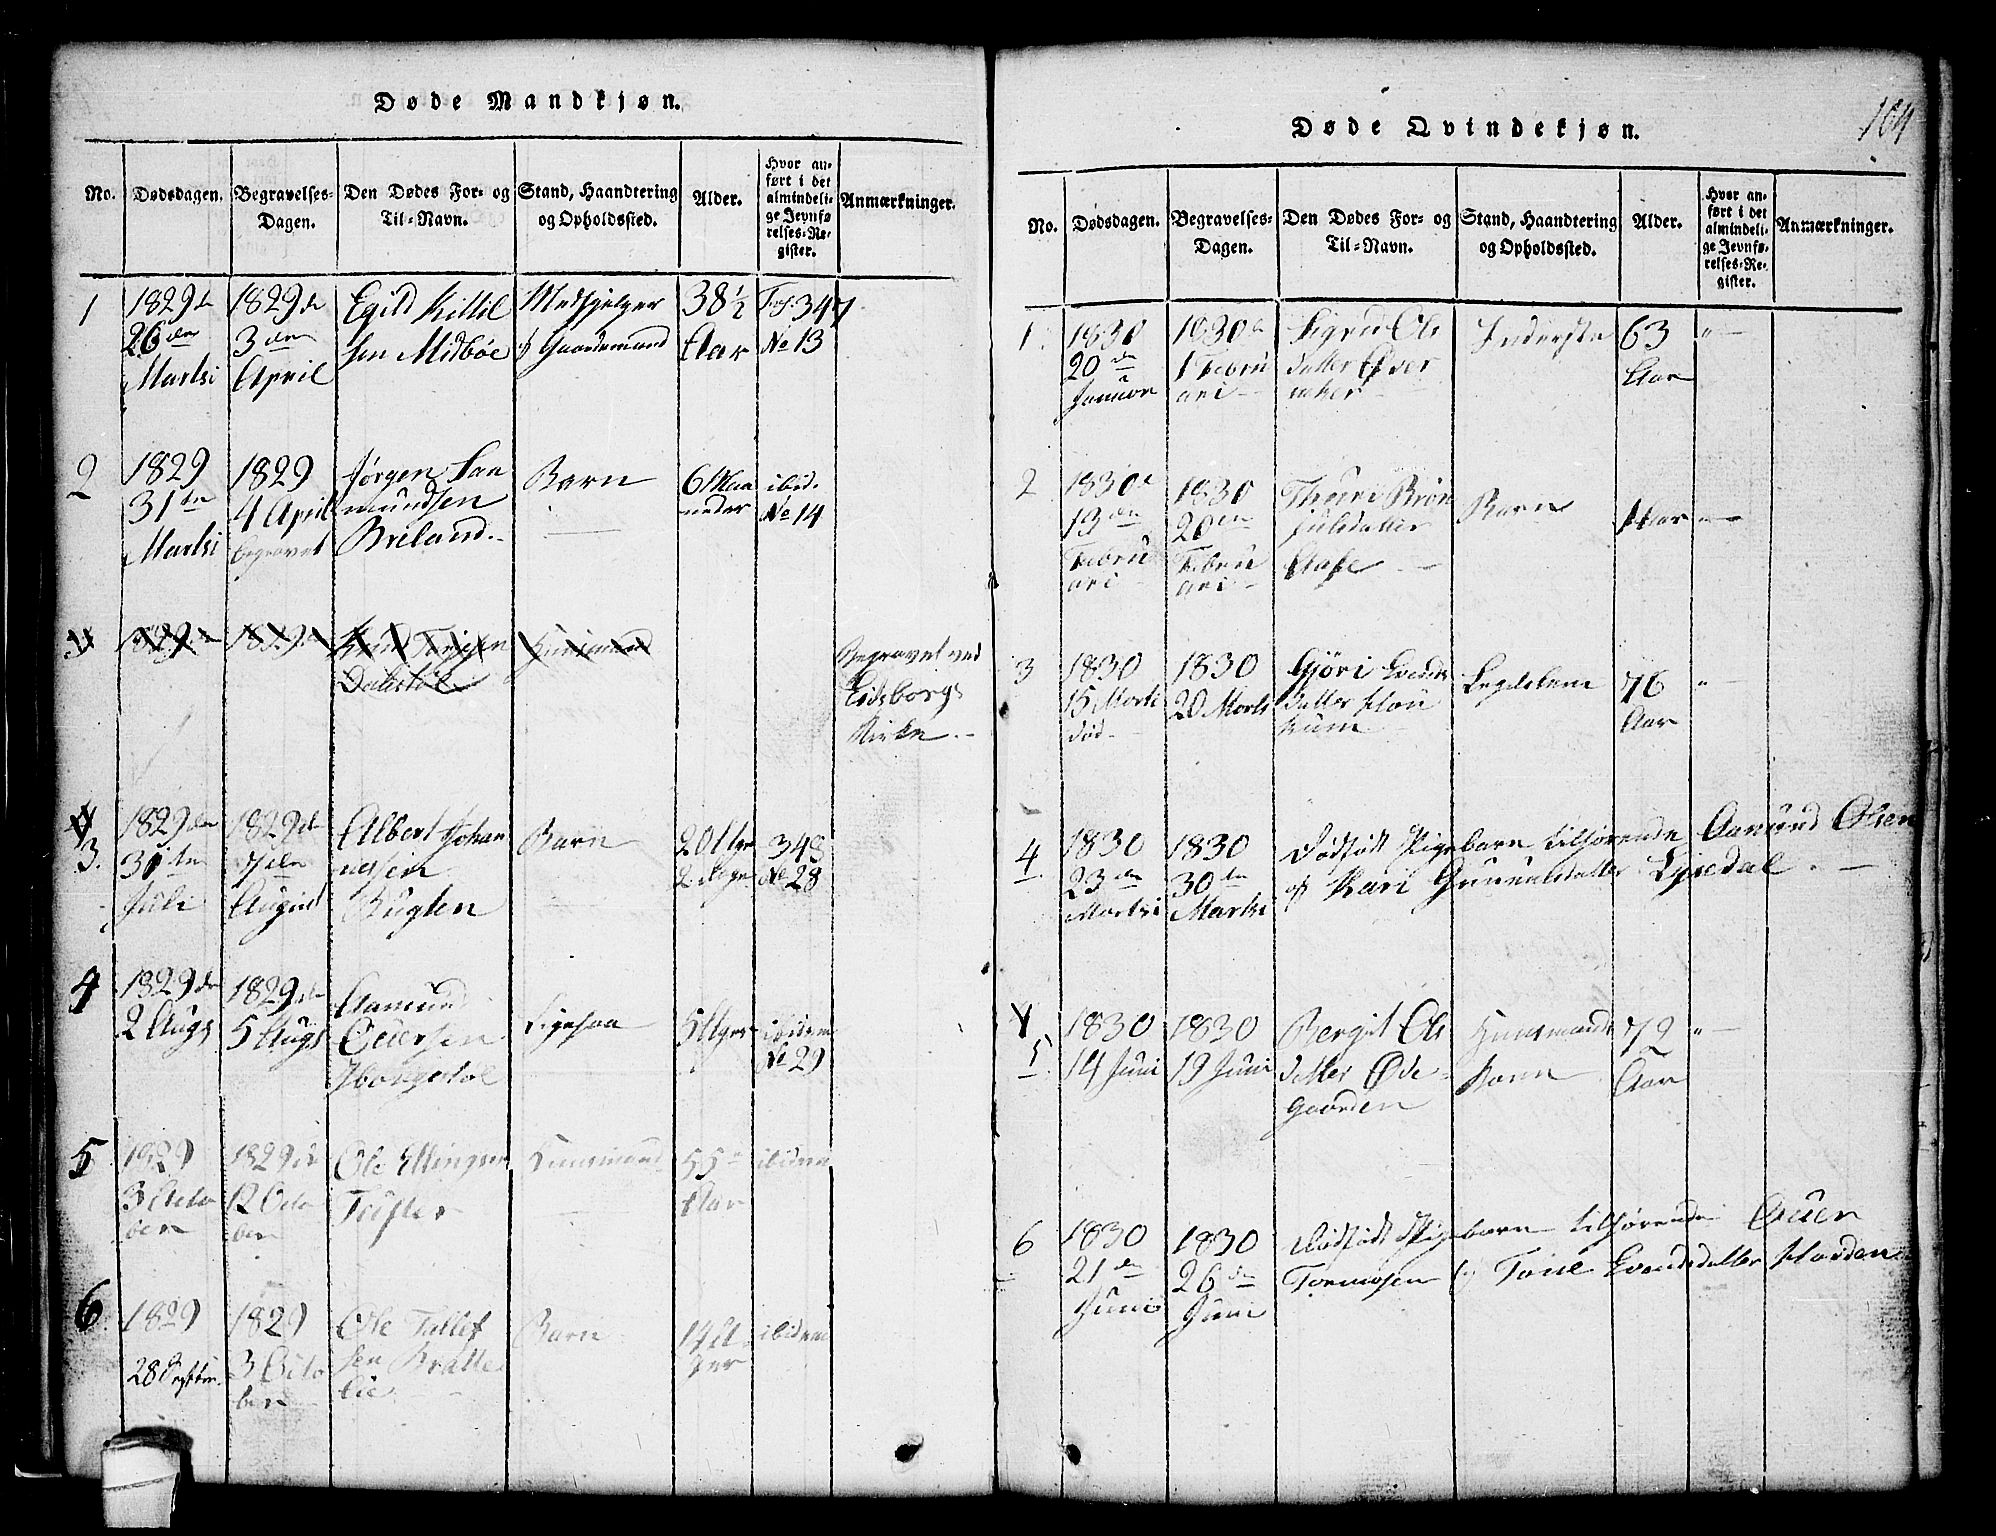 Døde Mandkjøn.
No.
Dødsdagen.
Begravelses-
Dagen.
Den Dødes For- og
Til-Navn.
Stand, Haandtering
og Opholdssted.
Alder.
Hvor an-
ført i det
almindeli-
ge Jevnfø
relses-Re-
gister.
Anmærkninger.
1
1829 de
26 den
Martsi
1829 de
3 den
April
Egild Kittil
sen Midbøe
Medhjelper
Gaardmand
38 1/2
Aar
Fol. 347
No 13
2
1829
31 te
Martsi
1829
4 April
begravet
Jørgen
mundsen
Breland.
Barn
6 Maa
neder
ibid.
No 14
3
1829
1829
Dalestøl
Huusmand
Begravet ved
Eidsborgs
Kirke.
3.
1829 den
31 te
Juli
1829 de
7 den
August
Albert Johan
nessen
Buglen
Barn
2 Dage
348
No 28
4
1829 de
2 Aug
1829 de
5 Aug
Aamund
ligesaa
ibidem
No 29
5
1829
3 Octo
ber
1829
12 Octo
ber
Ole Ellingsen
Tufter
Huusmand
55
Aar
ibidem
6
1829
28 Septbr.
1829
3 Octo
ber
Ole Tallef
sen Bratte
lie
Barn
ibidem
104
Døde Qvindekjøn.
No.
Dødsdagen.
Begravelses-
Dagen.
Den Dødes For- og
Til-Navn.
Stand, Haandtering
og Opholdssted.
Alder.
Hvor an-
ført i det
almindeli-
ge Jevnfø-
relses-Re-
gister.
Anmærkninger.
1.
1830
20 de
Januar
1830
1 Febru
ari
Sigrid Ols
datter Over
aaker
Inderste
63
Aar
2
1830
13 den
Febru
ari
1830
20 den
Febru
ari
Thuri Brøn
julsdatter
Barn
Aar
3
1830
15 Marti
død
1830
20 Marti
Gjøri Evens
datter
Legdelem
76
Aar
4
1830
23 de
Martsi
1830
30 te
Martsi
Dødfødt Pigebarn tilhørende Aamund Olsen
og Kari Gunnulsdatter Lysedal.
5
1830
14 Juni
1830
19 Juni
Bergit Ols
datter Øde
Gaarden
Huusmands
Kone
72
Aar
6
1830
21 de
Juni
1830
26 de
Juni
Dødfødt Pigebarn tilhørende
Tormosen og Tone Evensdatter